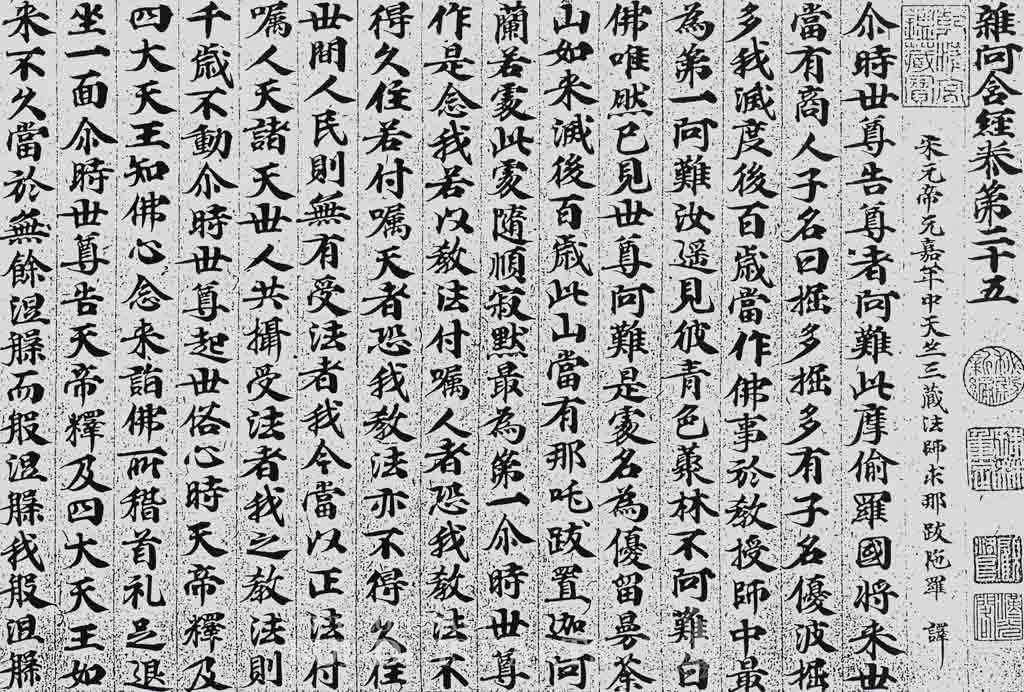 雜阿含經卷第二十五
宋元帝元嘉年中天竺三藏法師求那跋陁羅 譯
尒時世尊告尊者阿難此摩偷羅國將来世
當有商人子名曰掘多掘多有子名優波掘
多我滅度後百歲當作佛事於教授師中最
為第一阿難汝遥見彼青色藂林不阿難白
佛唯然已見世尊阿難是處名為優留曼茶
山如来滅後百歲此山當有那吒跋置迦阿
蘭若處此處隨順寂默最為第一尒時世尊
作是念我若以教法付嘱人者恐我教法不
得久住若付嘱天者恐我教法亦不得久住
世間人民則無有受法者我今當以正法付
嘱人天諸天世人共攝受法者我之教法則
千歲不動尒時世尊起世俗心時天帝釋及
四大天王知佛心念来詣佛所稽首礼足退
坐一面尒時世尊告天帝釋及四大天王如
来不久當於無餘涅槃而般涅槃我般涅槃